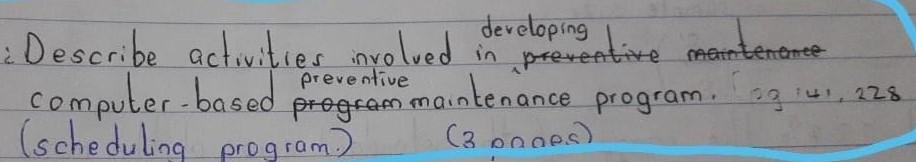 developing
: Describe activities involved in preventive maintenance
preventive
computer-based program maintenance program. 141, 228
(scheduling program) (3 pages)